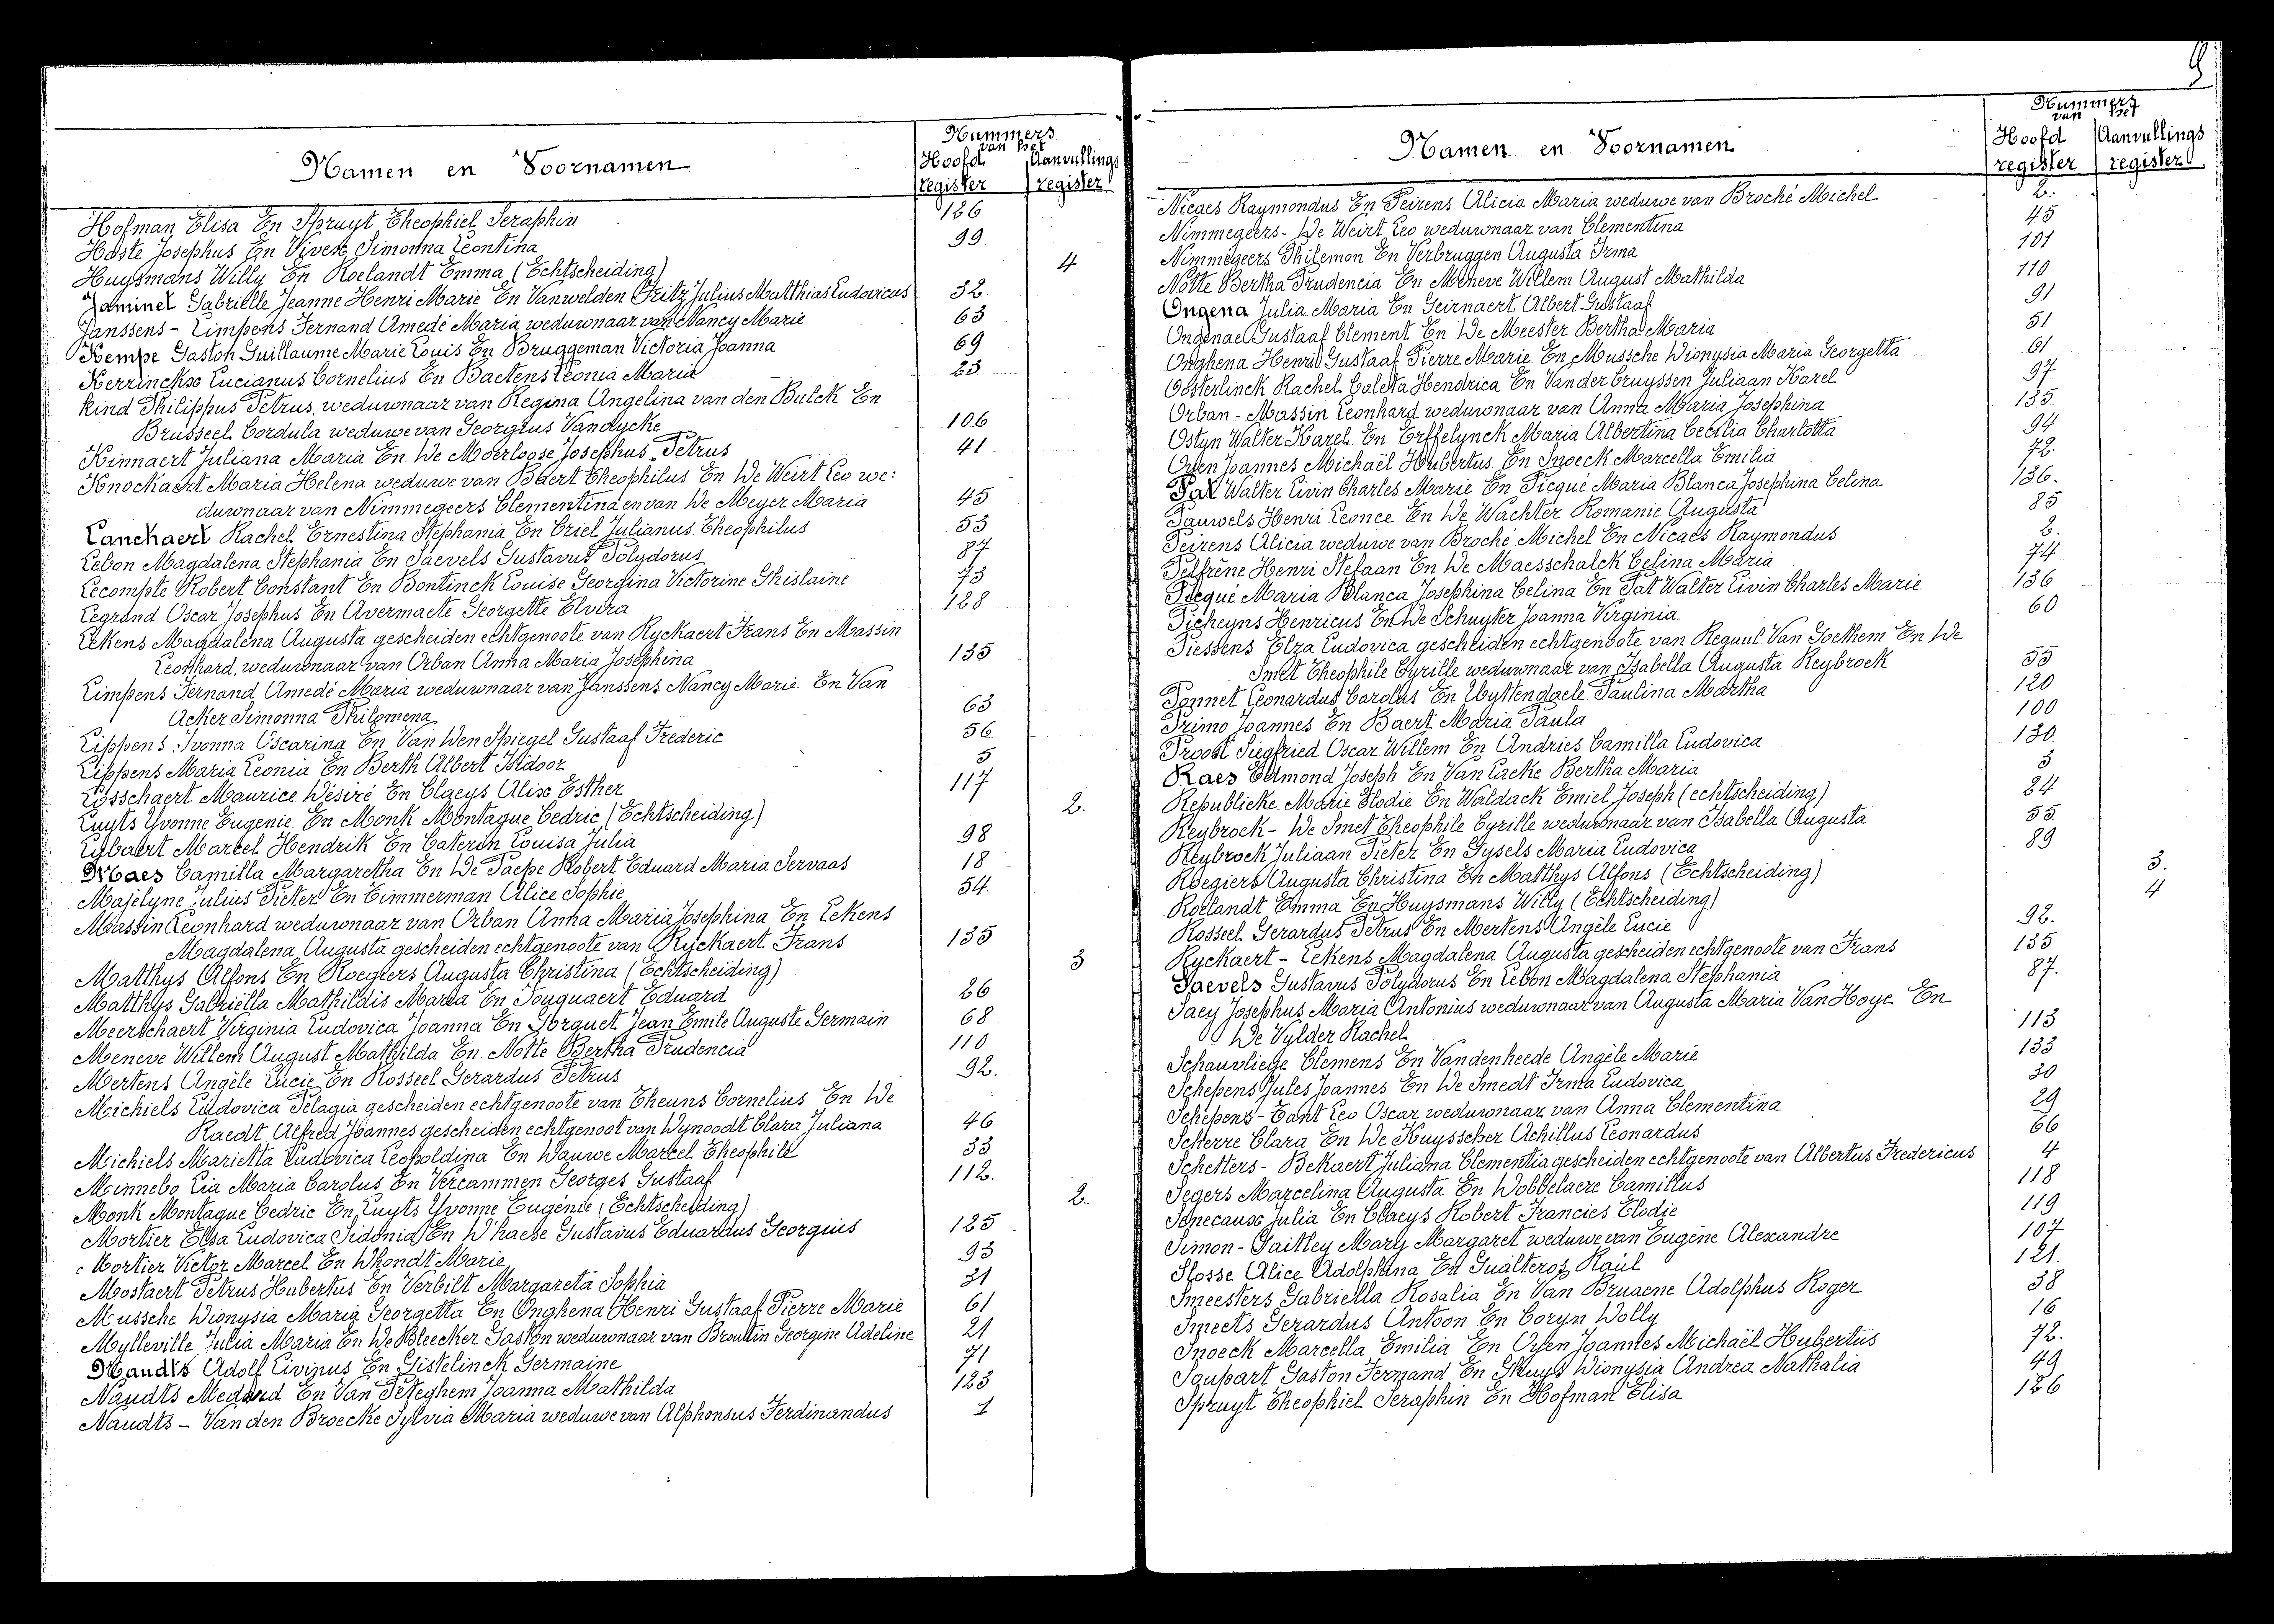 Namen en Voornamen
Nummers
van het
Hoofd Aanvullings
register register
Hofman Elisa En Spruyt Theophiel Seraphin 126
Hoste Josephus En Vivere Simonna Leontina 99
Huysmans Willy En Roelandt Emma (Echtscheiding) 4
Jaminet Gabrielle Jeanne Henri Marie En Vanwelden Fritz Julius Matthias Ludovicus 32.
Janssens - Limpens Fernand Amedé Maria weduwnaar van Nancy Marie 63
Kempe Gaston Guillaume Marie Louis En Bruggeman Victoria Joanna 69
Kerrinckx Lucianus Cornelius En Baetens Leonia Maria 23
Kind Philippus Petrus, weduwnaar van Regina Angelina van den Bulck En
Brusseel Cordula weduwe van Georgius Vandycke 106
Kinnaert Juliana Maria En De Moerloose Josephus Petrus 41.
Knockaert Maria Helena weduwe van Baert Theophilus En De Weirt Leo we:
duwnaar van Nimmegeers Clementina en van De Meyer Maria 45
Lanckaert Rachel Ernestina Stephania En Criel Julianus Theophilus 53
Lebon Magdalena Stephania En Saevels Gustavus Polydorus 87
Lecompte Robert Constant En Bontinck Louise Georgina Victorine Ghislaine 73
Legrand Oscar Josephus En Avermaete Georgette Elvira 128
Lekens Magdalena Augusta gescheiden echtgenoote van Ryckaert Frans En Massin
Leonhard, weduwnaar van Orban Anna Maria Josephina 135
Limpens Fernand Amedé Maria weduwnaar van Janssens Nancy Marie En Van
Acker Simonna Philomena 63
Lippens Ivonna Oscarina En Van Den Spiegel Gustaaf Frederic 56
Lippens Maria Leonia En Berth Albert Isidoor 5
Losschaert Maurice Désiré En Claeys Alix Esther 117
Luyts Yvonne Eugenie En Monk Montague Cedric (Echtscheiding) 2.
Lybaert Marcel Hendrik En Caterin Louisa Julia 98
Maes Camilla Margaretha En De Paepe Robert Eduard Maria Servaas 18
Majelyne Julius Pieter En Timmerman Alice Sophie 54
Massin Leonhard weduwnaar van Orban Anna Maria Josephina En Lekens
Magdalena Augusta gescheiden echtgenoote van Ryckaert Frans 135
Matthys Alfons En Roegiers Augusta Christina (Echtscheiding) 3
Matthys Gabriëlla Mathildis Maria En Fouquaert Eduard 26
Meerschaert Virginia Ludovica Joanna En Gorguet Jean Emile Auguste Germain 68
Meneve Willem August Mathilda En Notte Bertha Prudencia 110
Mertens Angèle Lucie En Rosseel Gerardus Petrus 92.
Michiels Ludovica Pelagia gescheiden echtgenoote van Theuns Cornelius En De
Raedt Alfred Joannes gescheiden echtgenoot van Wynoodt Clara Juliana 46
Michiels Marietta Ludovica Leopoldina En Dauwe Marcel Theophile 33
Minnebo Lia Maria Carolus En Vercammen Georges Gustaaf 112.
Monk Montague Cedric En Luyts Yvonne Eugénie (Echtscheiding) 2.
Mortier Elsa Ludovica Sidonia En D'haese Gustavus Eduardus Georgius 125
Mortier Victor Marcel En Dhondt Marie 93
Mostaert Petrus Hubertus En Verbilt Margareta Sophia 31
Mussche Dionysia Maria Georgetta En Onghena Henri Gustaaf Pierre Marie 61
Mylleville Julia Maria En De Bleecker Gaston weduwnaar van Broutin Georgine Adeline 21
Naudts Adolf Livinus En Gistelinck Germaine 71
Naudts Medard En Van Peteghem Joanna Mathilda 123
Naudts - Van den Broecke Sylvia Maria weduwe van Alphonsus Ferdinandus 1
9
Namen en Voornamen
Nummers
van het
Hoofd Aanvullings
register register
Nicaes Raymondus En Peirens Alicia Maria weduwe van Broché Michel 2.
Nimmegeers - De Weirt Leo weduwnaar van Clementina 45
Nimmegeers Philemon En Verbruggen Augusta Irma 101
Notte Bertha Prudencia En Meneve Willem August Mathilda 110
Ongena Julia Maria En Geirnaert Albert Gustaaf 91
Ongenae Gustaaf Clement En De Meester Bertha Maria 51
Onghena Henri Gustaaf Pierre Marie En Mussche Dionysia Maria Georgetta 61
Oosterlinck Rachel Coleta Hendrica En Van der Cruyssen Juliaan Karel 97
Orban - Massin Leonhard weduwnaar van Anna Maria Josephina 135
Ostyn Walter Karel En Erffelynck Maria Albertina Cecilia Charlotta 94
Oyen Joannes Michaël Hubertus En Snoeck Marcella Emilia 72.
Pat Walter Livin Charles Marie En Picqué Maria Blanca Josephina Celina 136.
Pauwels Henri Leonce En De Wachter Romanie Augusta 85
Peirens Alicia weduwe van Broché Michel En Nicaes Raymondus 2.
Pelfrêne Henri Stefaan En De Maesschalck Celina Maria 74
Picqué Maria Blanca Josephina Celina En Pat Walter Livin Charles Marie 136
Picheyns Henricus En De Schuyter Joanna Virginia 60
Piessens Elza Ludovica gescheiden echtgenoote van Reguul Van Goethem En De
Smet Theophile Cyrille weduwnaar van Isabella Augusta Reybroek 55
Ponnet Leonardus Carolus En Uyttendaele Paulina Martha 120
Primo Joannes En Baert Maria Paula 100
Proost Siegfried Oscar Willem En Andries Camilla Ludovica 130
Raes Edmond Joseph En Van Laeke Bertha Maria 3
Republicke Marie Elodie En Waldack Emiel Joseph (echtscheiding) 24
Reybroek - De Smet Theophile Cyrille weduwnaar van Isabella Augusta 55
Reybrock Juliaan Pieter En Gysels Maria Ludovica 89
Roegiers Augusta Christina En Matthys Alfons (Echtscheiding) 3.
Roelandt Emma En Huysmans Willy (Echtscheiding) 4
Rosseel Gerardus Petrus En Mertens Angèle Lucie 92.
Ryckaert - Lekens Magdalena Augusta gescheiden echtgenoote van Frans 135
Saevels Gustavus Polydorus En Lebon Magdalena Stephania 87.
Saey Josephus Maria Antonius weduwnaar van Augusta Maria Van Hoye En
De Vylder Rachel 113
Schauvliege Clemens En Vandenheede Angèle Marie 133
Schepens Jules Joannes En De Smedt Irma Ludovica 30
Schepens - Tant Leo Oscar weduwnaar van Anna Clementina 29
Scherre Clara En De Kuysscher Achillus Leonardus 66
Schetters - Bekaert Juliana Clementia gescheiden echtgenoote van Albertus Fredericus 4
Segers Marcelina Augusta En Dobbelaere Camillus 118
Senecaux Julia En Claeys Robert Francies Elodie 119
Simon - Gaitley Mary Margaret weduwe van Eugène Alexandre 107
Slosse Alice Adolphina En Gualteros Raúl 121.
Smeesters Gabriella Rosalia En Van Bruaene Adolphus Roger 38
Smeets Gerardus Antoon En Coryn Dolly 16
Snoeck Marcella Emilia En Oyen Joannes Michaël Hubertus 72.
Soupart Gaston Fernand En Ghuys Dionysia Andrea Nathalia 49
Spruyt Theophiel Seraphin En Hofman Elisa 126